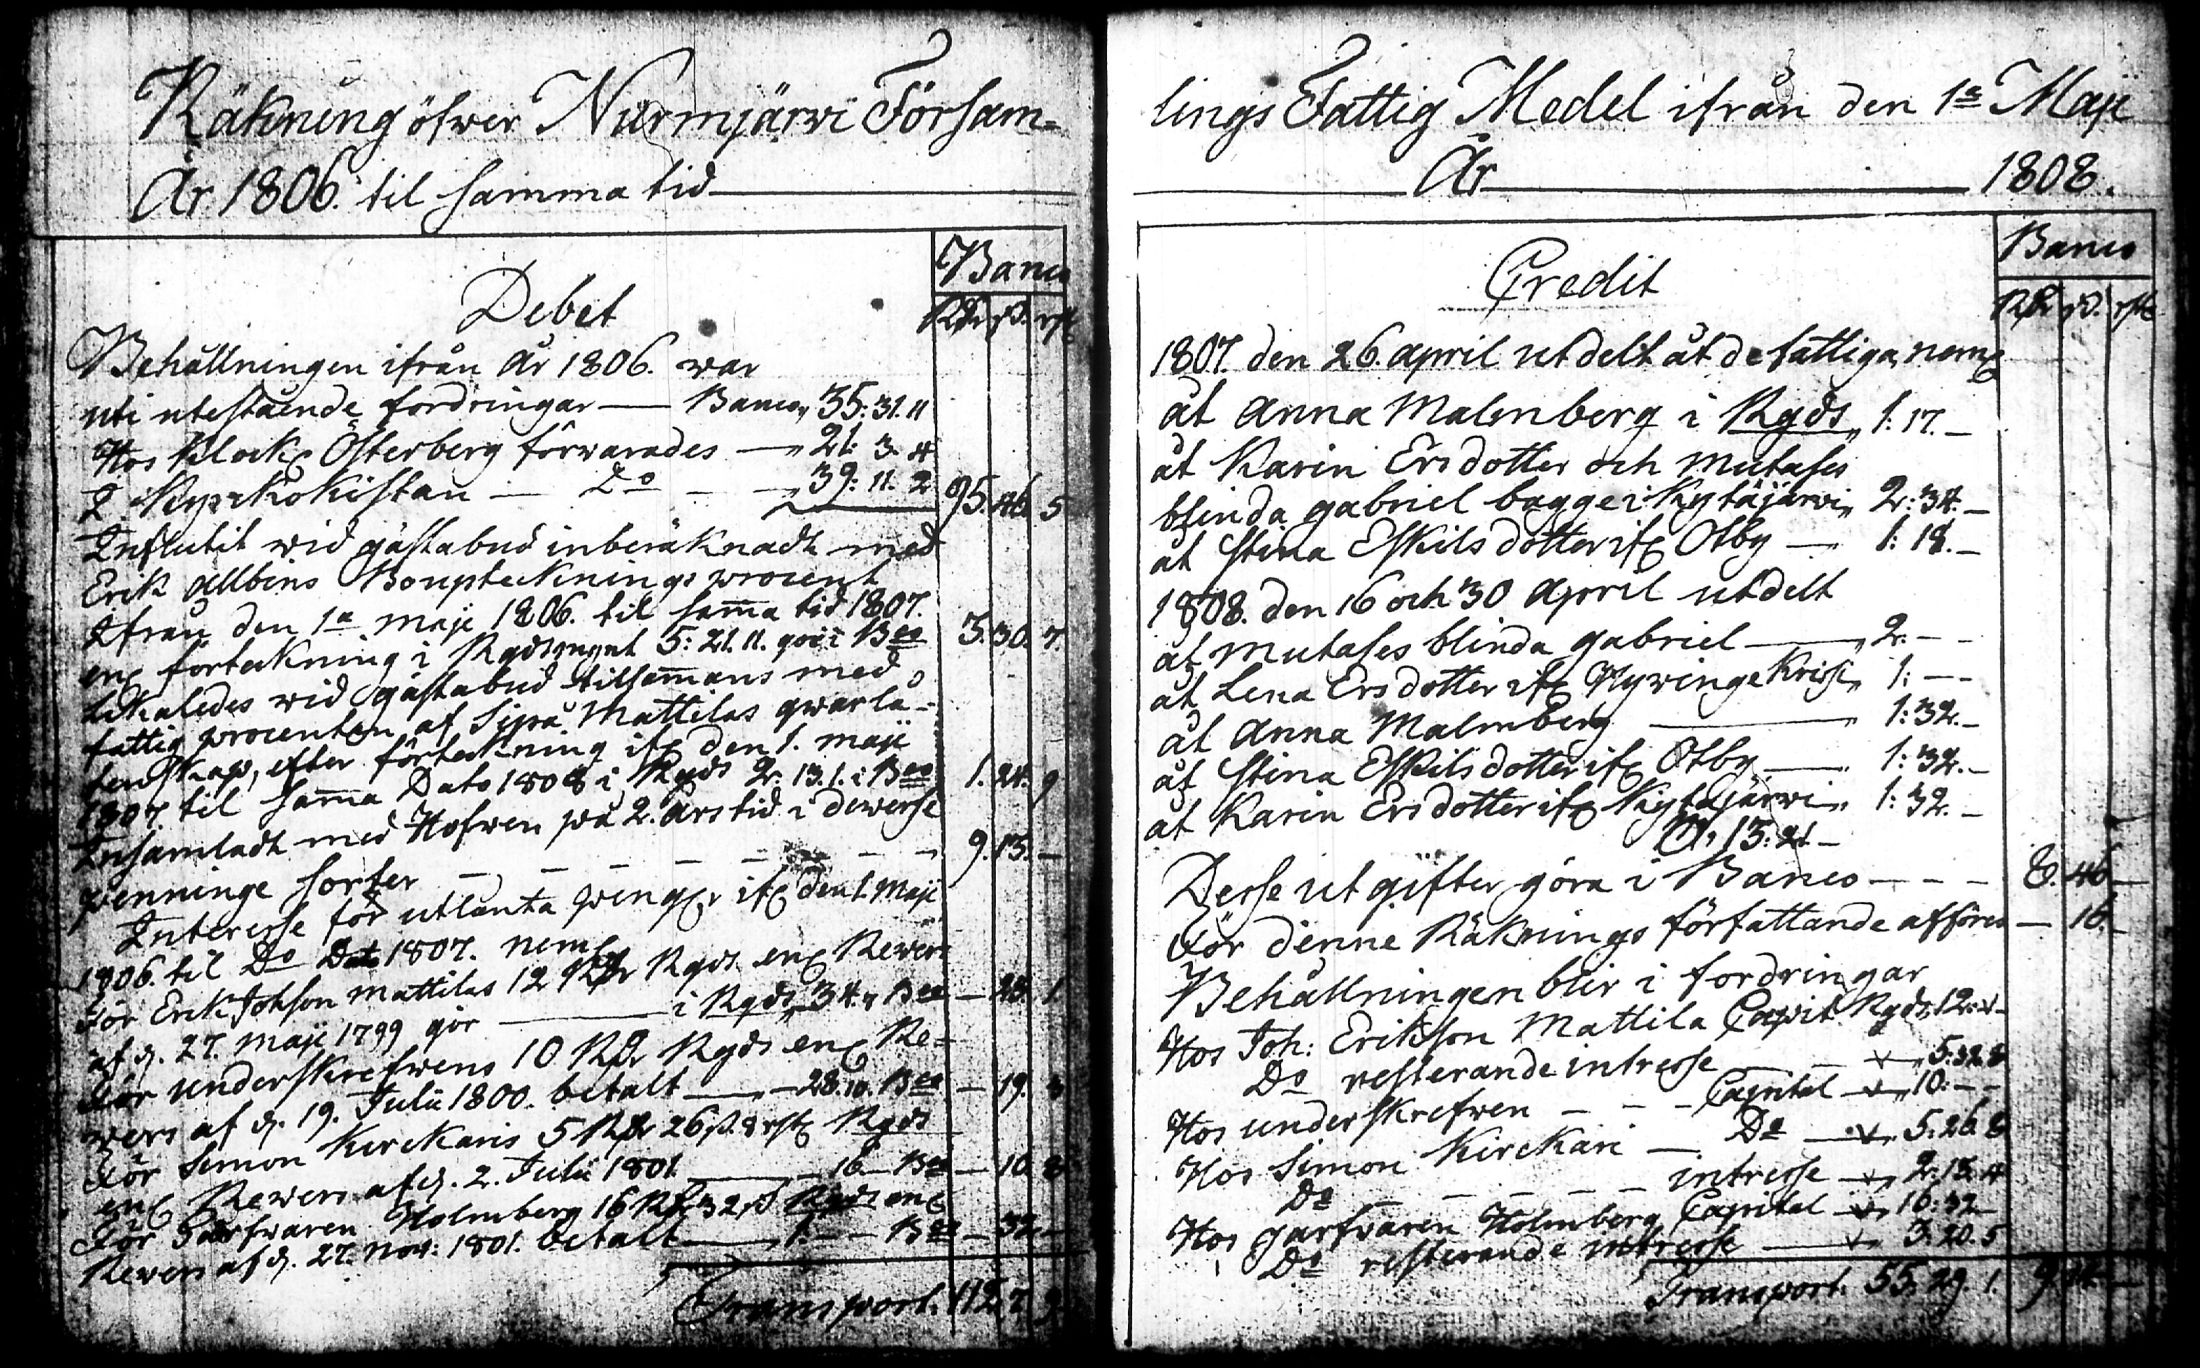 Räkning öfwer Nurmjärwi Försam=
År 1806. til samma tid
Banco
Debet
Rdr ß. rst
Behållningen ifrån år 1806. war
uti utestående fordringar — Banco, 35: 31. 11
Hos Klock Österberg förwarades — 21. 3. 4
I Kyrkokistan — Do — 39: 11. 2 95. 46. 5
Influtit wid gästabud inberäknadt med
Erik Albins Bouptecknings procent
ifrån den 1a Maji 1806. til sama tid 1807.
enl förteckning i Rgds mynt 5: 21. 11. gör i Bco 3. 30. 7.
Likaledes wid gästabud tillsamans med
fattig procenten af Sipra Mattilas qwarlå-
tenskap, efter förteckning ifr den 1. Maji
1807. til sama Dato 1808 i Rgds 2. 13. 1. i Bco 1. 24. 9
Insamladt med Hofwen på 2. års tid i dewerse
penninge sorter — — — — — 9. 13. —
Interesse för utlånta penger ifr den 1. Maji
1806. til Do Dato 1807. neml
För Erik Johson Mattilas 12 Rdr Rgds enl Rewers
af d. 27. Maji 1799 gör — i Rgds 34. " Bco — 23. 1
För underskrefwens 10 Rdr Rgds enl Re=
wers af d. 19. Julii 1800. betalt — 28. 10. Bco — 19. 3
För Simon Kirckaris 5 Rdr 26 ß. 8 rst Rgds
enl Rewers af d. 2. Julii 1801. — 16 — Bco — 10. 8
För Garfwaren Holmberg 16 Rdr 32 ß Rgds enl
Rewers af d. 27. Nov: 1801. betalt — 1. — — Bco — 32. —
Transport. 112. 7. 9
lings Fattig Medel ifrån den 1a Maji
År 1808.
Banco
Credit
Rdr ß. rst
1807. den 26. april utdelt åt de fattiga neml
åt Anna Malmberg i Rgds, 1: 17. —
åt Karin Ersdotter och Mutases
blinda gabriel bagge i Kytäjärwi, 2: 34. —
åt Stina Eskilsdotter ifr Otby — 1: 18. —
1808. den 16 och 30 April utdelt
åt Mutases blinda gabriel — 2. — —
åt Lena Ersdotter ifr Hywinge Krissi, 1: — —
åt Anna Malmberg — 1: 32. —
åt Stina Eskilsdotter ifr Otby — 1: 32. —
åt Karin Ersdotter ifr Kytäjärwi, 1: 32. —
13: 21 —
Desse utgifter göra i Banco — — — 8. 46 —
För denne Räknings författande afföres — 16. —
Behållningen blir i fordringar
Hos Joh: Erikson Mattila Capit. Rgds, 12. " —
Do resterande intresse — " 5: 32. 8
Hos underskrefwen — — — Capital — " 10: — —
Hos Simon Kirckari — Do — " 5: 26. 8
Do — — — — intresse — " 2: 13. 4
Hos garfwaren Holmberg Capital — " 16: 32 —
Do resterande intresse — " 3: 20. 5
Transport. 55. 29. 1. 9.